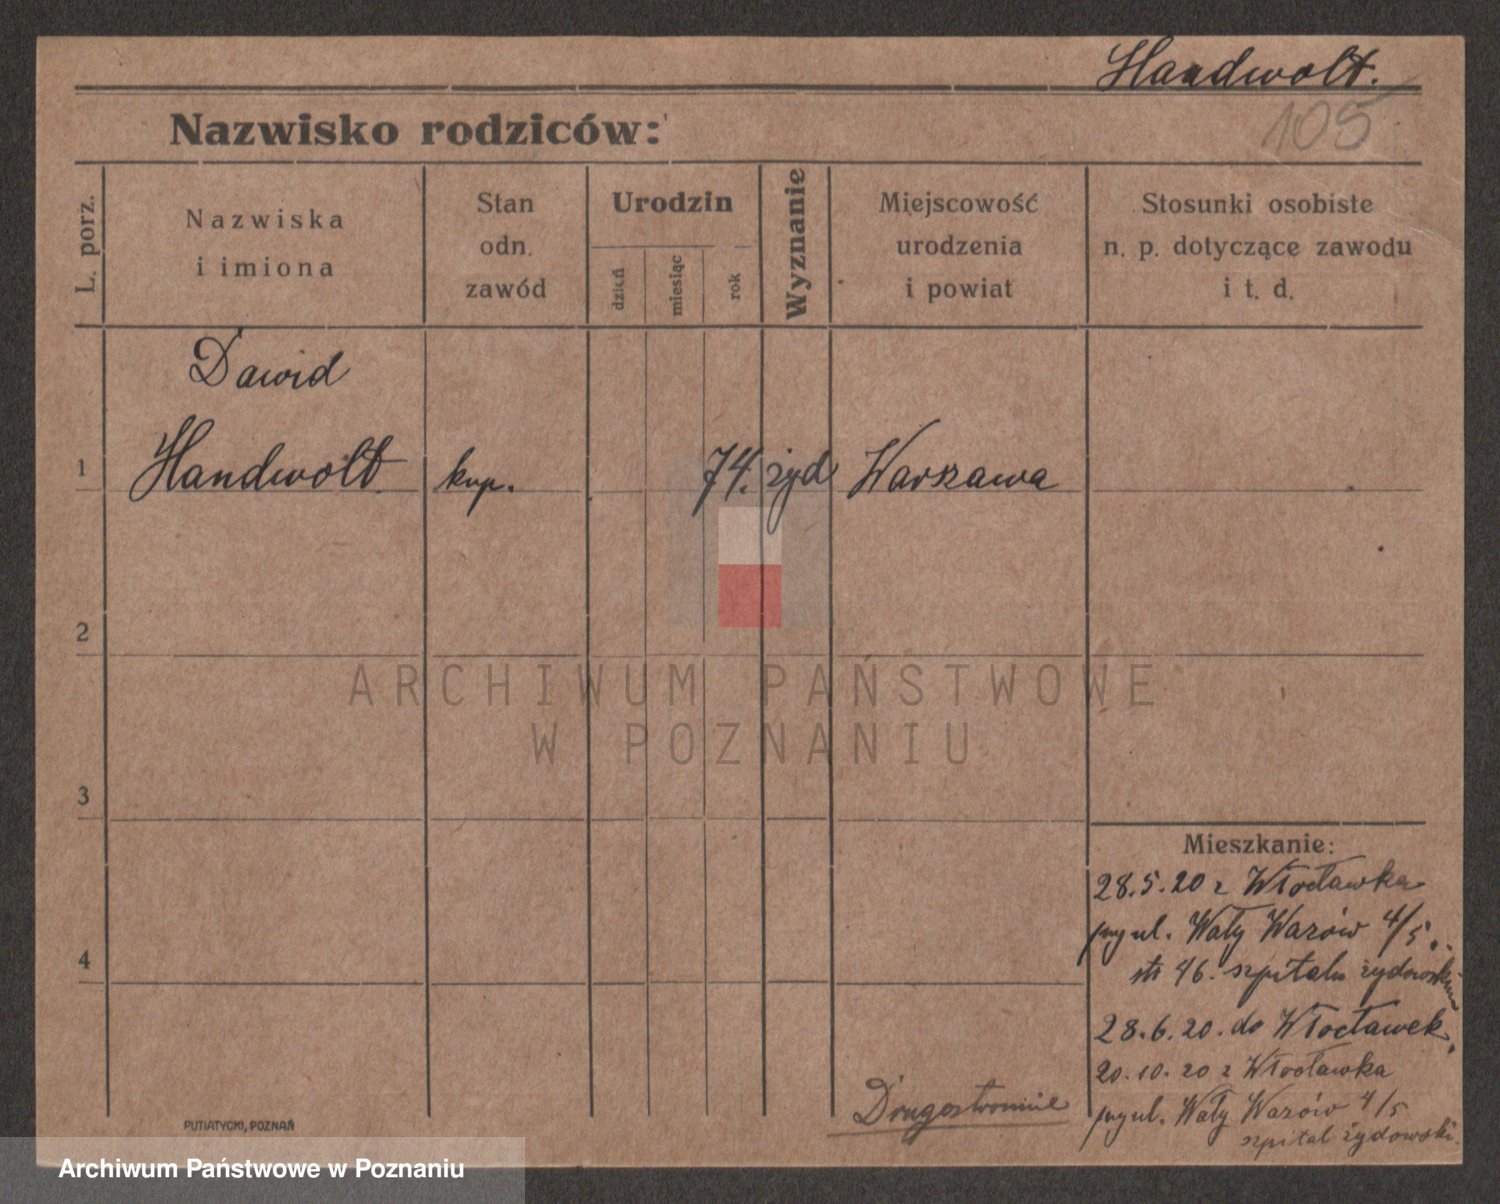 Handwolt.
105
Nazwisko rodziców:
L. porz.
Nazwiska
i imiona
Stan
odn.
zawód
Urodzin
dzień
miesiąc
rok
Wyznanie
Miejscowość
urodzenia
i powiat
Stosunki osobiste
n. p. dotyczące zawodu
i t. d.
Dawid
1 Handwolt kup. 74. żyd Warszawa
2
ARCHIWUM PAŃSTWOWE
W POZNANIU
3
4
Mieszkanie:
28.5.20 z Włocławka
ul. Wały Wazów 4/5.
46. szpitalu żydowskim
28.6.20. do Włocławek.
20.10.20 z Włocławka
ul. Wały Wazów 4/5
szpital żydowski.
Drugostronnie
PUTIATYCKI, POZNAŃ
Archiwum Państwowe w Poznaniu